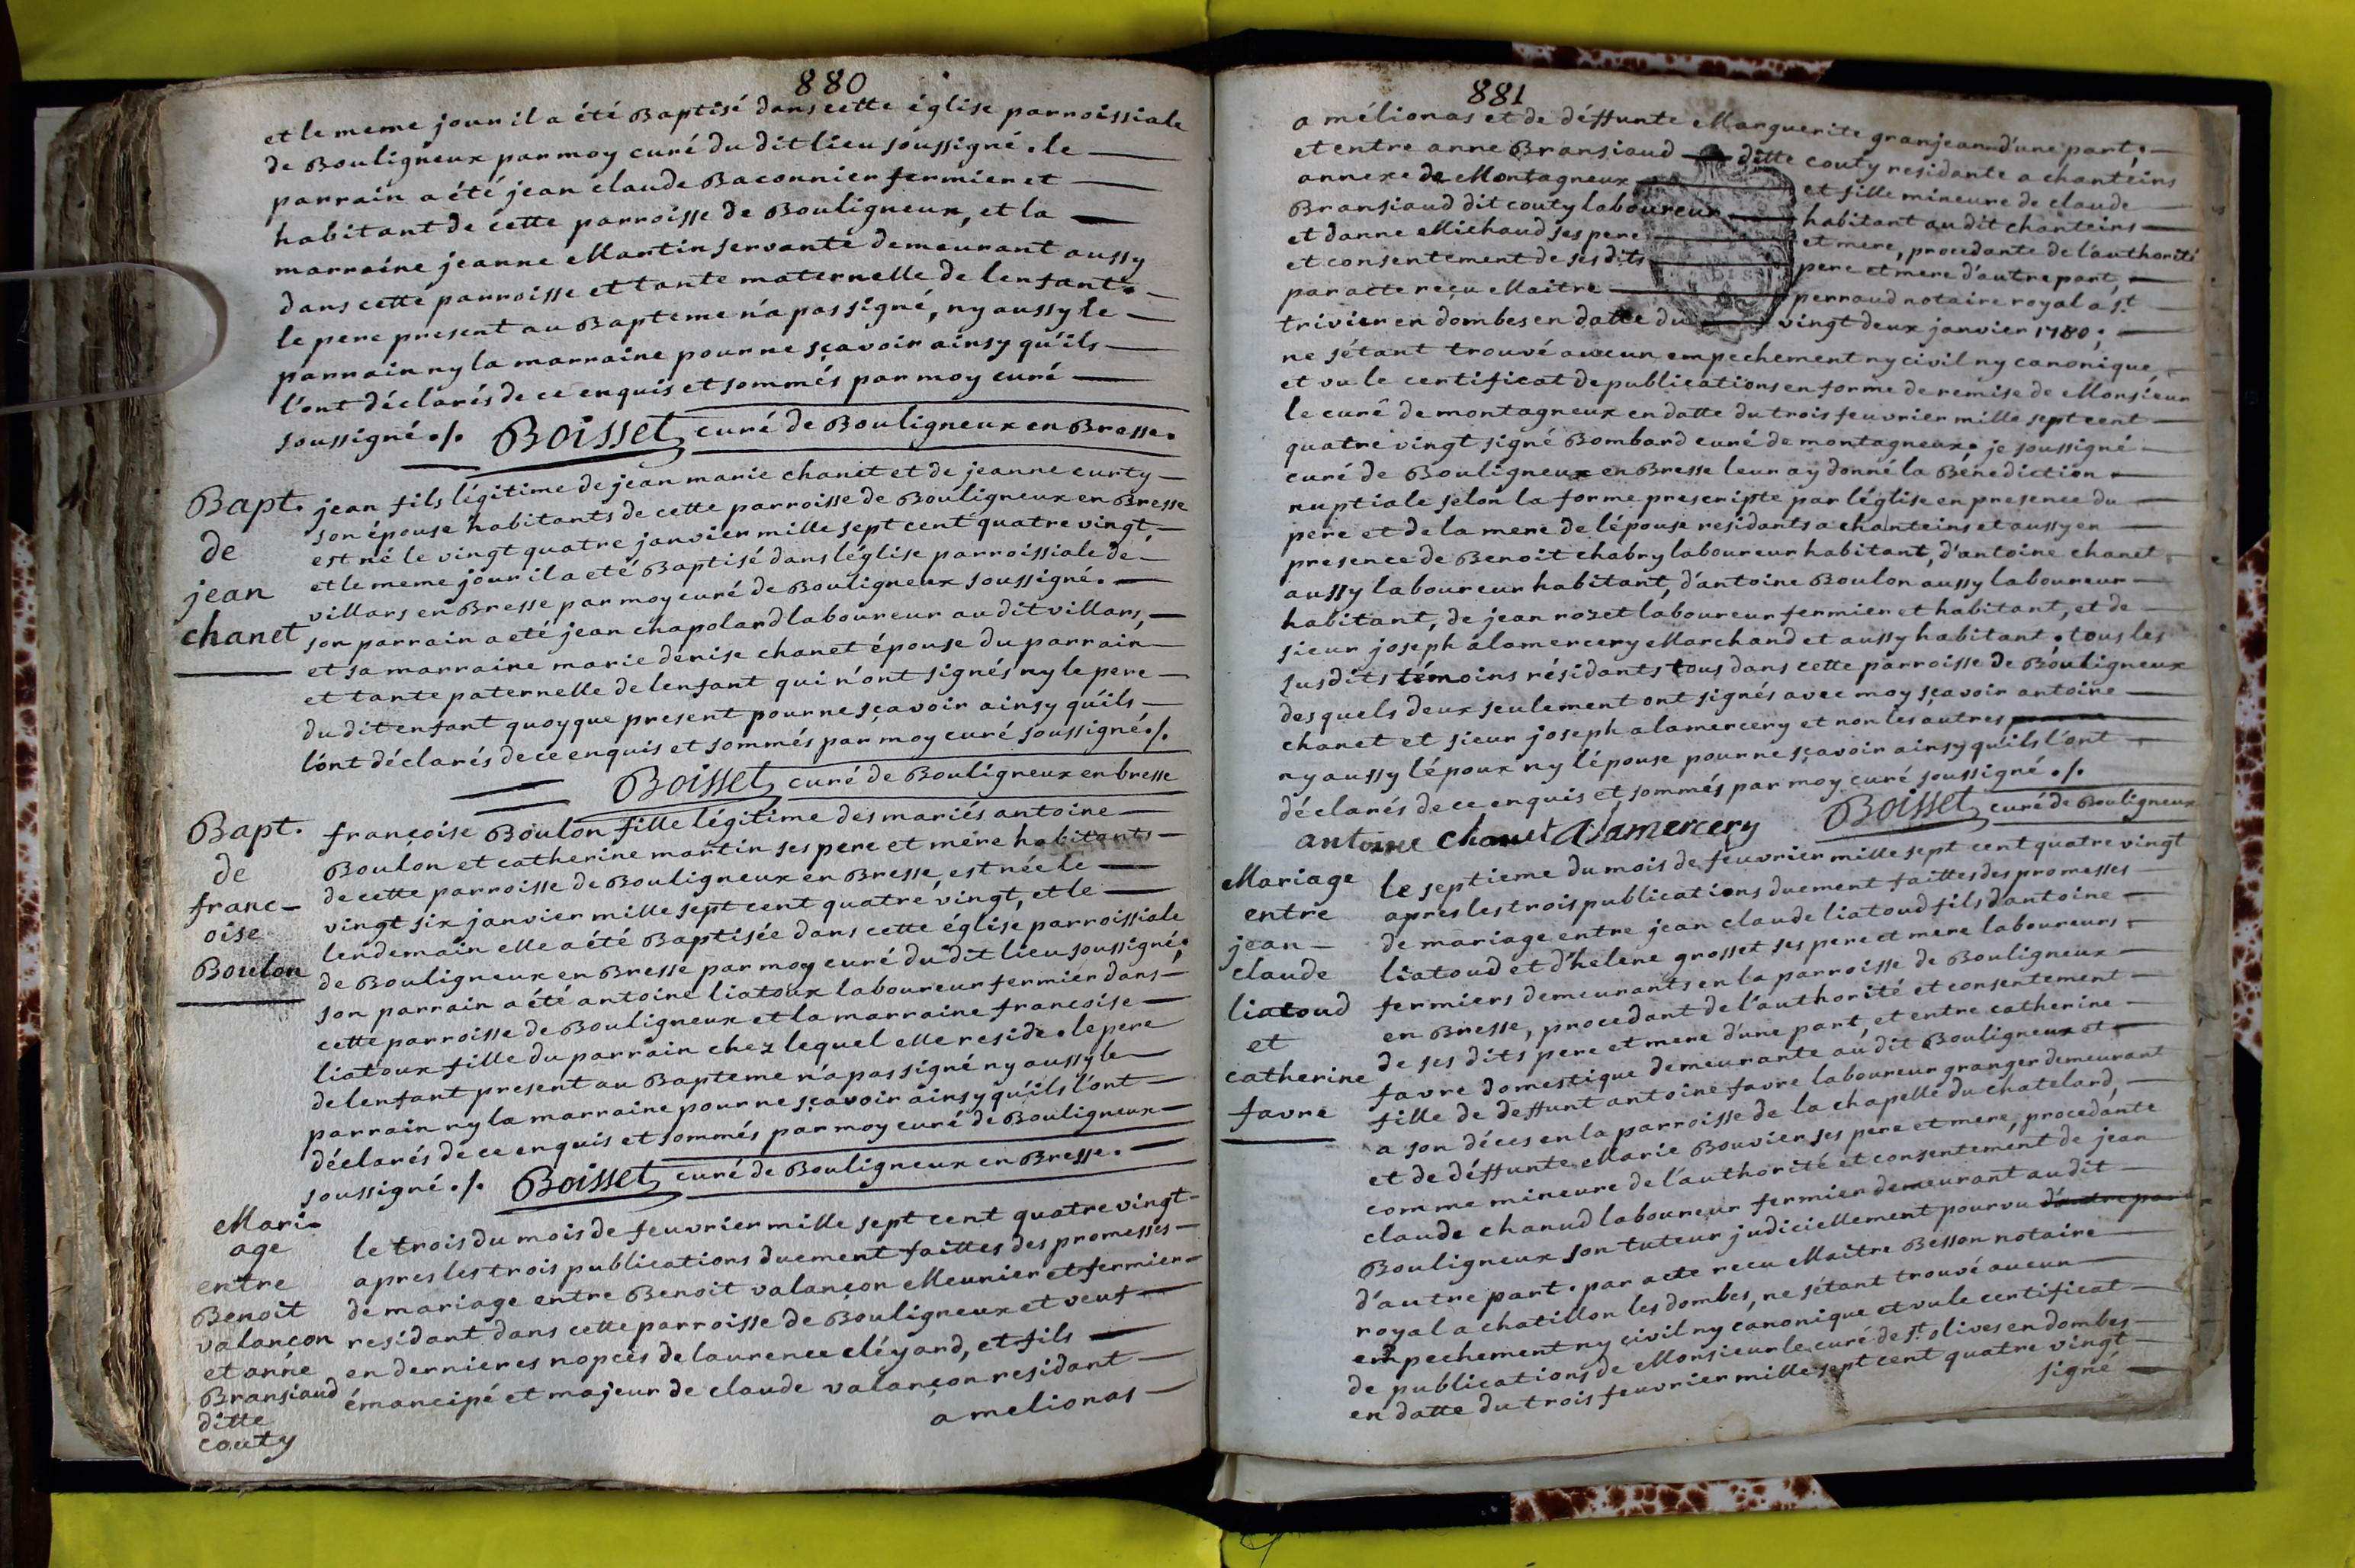 880
et le meme jour il a été Baptisé dans cette église parroissiale
de Bouligneux par moy curé du dit lieu soussigné. le
parrain a été jean claude Baconnier fermier et
habitant de cette parroisse de Bouligneux, et la
marraine jeanne Martin servante demeurant aussy
dans cette parroisse et tante maternelle de lenfant.
le pere present au Bapteme n'a pas signé, ny aussy le
parrain ny la marraine pour ne sçavoir ainsy qu'ils
l'ont déclarés de ce enquis et sommés par moy curé
soussigné./. Boisset curé de Bouligneux en Bresse.
Bapt.
de
jean
chanet
jean fils légitime de jean marie chanet et de jeanne curty
son épouse habitants de cette parroisse de Bouligneux en Bresse
est né le vingt quatre janvier mille sept cent quatre vingt,
et le meme jour il a eté Baptisé dans l'église parroissiale de
villars en Bresse par moy curé de Bouligneux soussigné.
son parrain a eté jean chapolard laboureur au dit villars,
et sa marraine marie denise chanet épouse du parrain
et tante paternelle de lenfant qui n'ont signés ny le pere
du dit enfant quoy que present pour ne sçavoir ainsy qu'ils
l'ont déclarés de ce enquis et sommés par moy curé soussigné./.
Boisset curé de Bouligneux en bresse
Bapt.
de
franc-
oise
Boulon
françoise Boulon fille légitime des mariés antoine
Boulon et catherine martin ses pere et mére habitants
de cette parroisse de Bouligneux en Bresse, est née le
vingt six janvier mille sept cent quatre vingt, et le
lendemain elle a été Baptisée dans cette église parroissiale
de Bouligneux en Bresse par moy curé du dit lieu soussigné;
son parrain a été antoine liatoux laboureur fermier dans
cette parroisse de Bouligneux et la marraine francoise
liatoux fille du parrain chez lequel elle reside. le pere
de lenfant present au Bapteme n'a pas signé ny aussy le
parrain ny la marraine pour ne sçavoir ainsy qu'ils l'ont
déclarés de ce enquis et sommés par moy curé de Bouligneux
soussigné./. Boisset curé de Bouligneux en Bresse.
Mari-
age
entre
Benoit
valançon
et anne
Bransiaud
ditte
couty
le trois du mois de feuvrier mille sept cent quatre vingt
apres les trois publications duement faittes des promesses
de mariage entre Benoit valançon Meunier et fermier
residant dans cette parroisse de Bouligneux et veuf
en dernieres nopces de laurence cléyard, et fils
émancipé et majeur de claude valançon residant
a melionas
881
a mélionas et de déffunte Marguerite granjean d'une part;
et entre anne Bransiaud ditte couty residante a chanteins
annexe de Montagneux et fille mineure de claude
Bransiaud dit couty laboureur habitant au dit chanteins
et danne Michaud ses pere et mere, procedante de l'authorité
et consentement de ses dits pere et mere d'autre part,
par acte reçu Maitre perraud notaire royal a st.
trivier en dombes en datte du vingt deux janvier 1780;
ne sétant trouvé aucun empechement ny civil ny canonique
et vu le certificat de publications en forme de remise de Monsieur
le curé de montagneux en datte du trois feuvrier mille sept cent
quatre vingt signé Bombard curé de montagneux; je soussigné
curé de Bouligneux en Bresse leur ay donné la Bénédiction
nuptiale selon la forme prescripte par l'église en presence du
pere et de la mere de lépouse residants a chanteins et aussy en
presence de Benoit chabry laboureur habitant, d'antoine chanet
aussy laboureur habitant, d'antoine Boulon aussy laboureur
habitant, de jean rozet laboureur fermier et habitant, et de
sieur joseph alamercery Marchand et aussy habitant. tous les
susdits témoins résidants tous dans cette parroisse de Bouligneux
desquels deux seulement ont signés avec moy sçavoir antoine
chanet et sieur joseph alamercery et non les autres
ny aussy l'époux ny l'épouse pour ne sçavoir ainsy qu'ils l'ont
déclarés de ce enquis et sommés par moy curé soussigné./.
antoine chanet Alamercery Boisset curé de Bouligneux
Mariage
entre
jean-
claude
liatoud
et
catherine
favre
le septieme du mois de feuvrier mille sept cent quatre vingt
apres les trois publications duement faittes des promesses
de mariage entre jean claude liatoud fils d'antoine
liatoud et d'helene grosset ses pere et mere laboureurs
fermiers demeurants en la parroisse de Bouligneux
en Bresse, procedant de l'authorité et consentement
de ses dits pere et mere d'une part, et entre catherine
favre domestique demeurante au dit Bouligneux et
fille de deffunt antoine favre laboureur granger demeurant
a son déces en la parroisse de la chapelle du chatelard,
et de déffunte Marie Bouvier ses pere et mere, procedante
comme mineure de l'authorité et consentement de jean
claude chanud laboureur fermier demeurant au dit
Bouligneux son tuteur judiciellement pourvu d'autre part
d'autre part. par acte recu Maitre Besson notaire
royal a chatillon les dombes, ne sétant trouvé aucun
empechement ny civil ny canonique et vu le certificat
de publications de Monsieur le curé de st. olives en dombes
en datte du trois feuvrier mille sept cent quatre vingt
signé